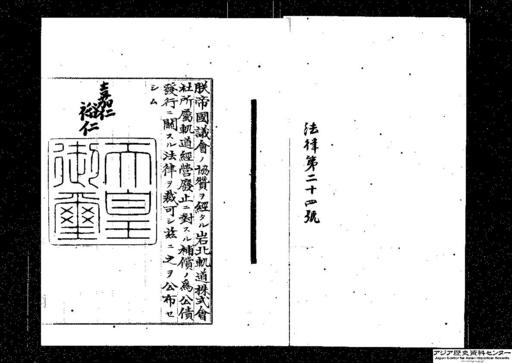 法律第二十四號
朕帝國議會ノ協贊ヲ經タル岩北軌道株式會
社所屬軌道經營廢止ニ對スル補償ノ爲公債
發行ニ關スル法律ヲ裁可シ茲ニ之ヲ公布セ
シム
嘉仁
裕仁
天皇
御璽
アジア歴史資料センター
Japan Center for Asian Historical Records